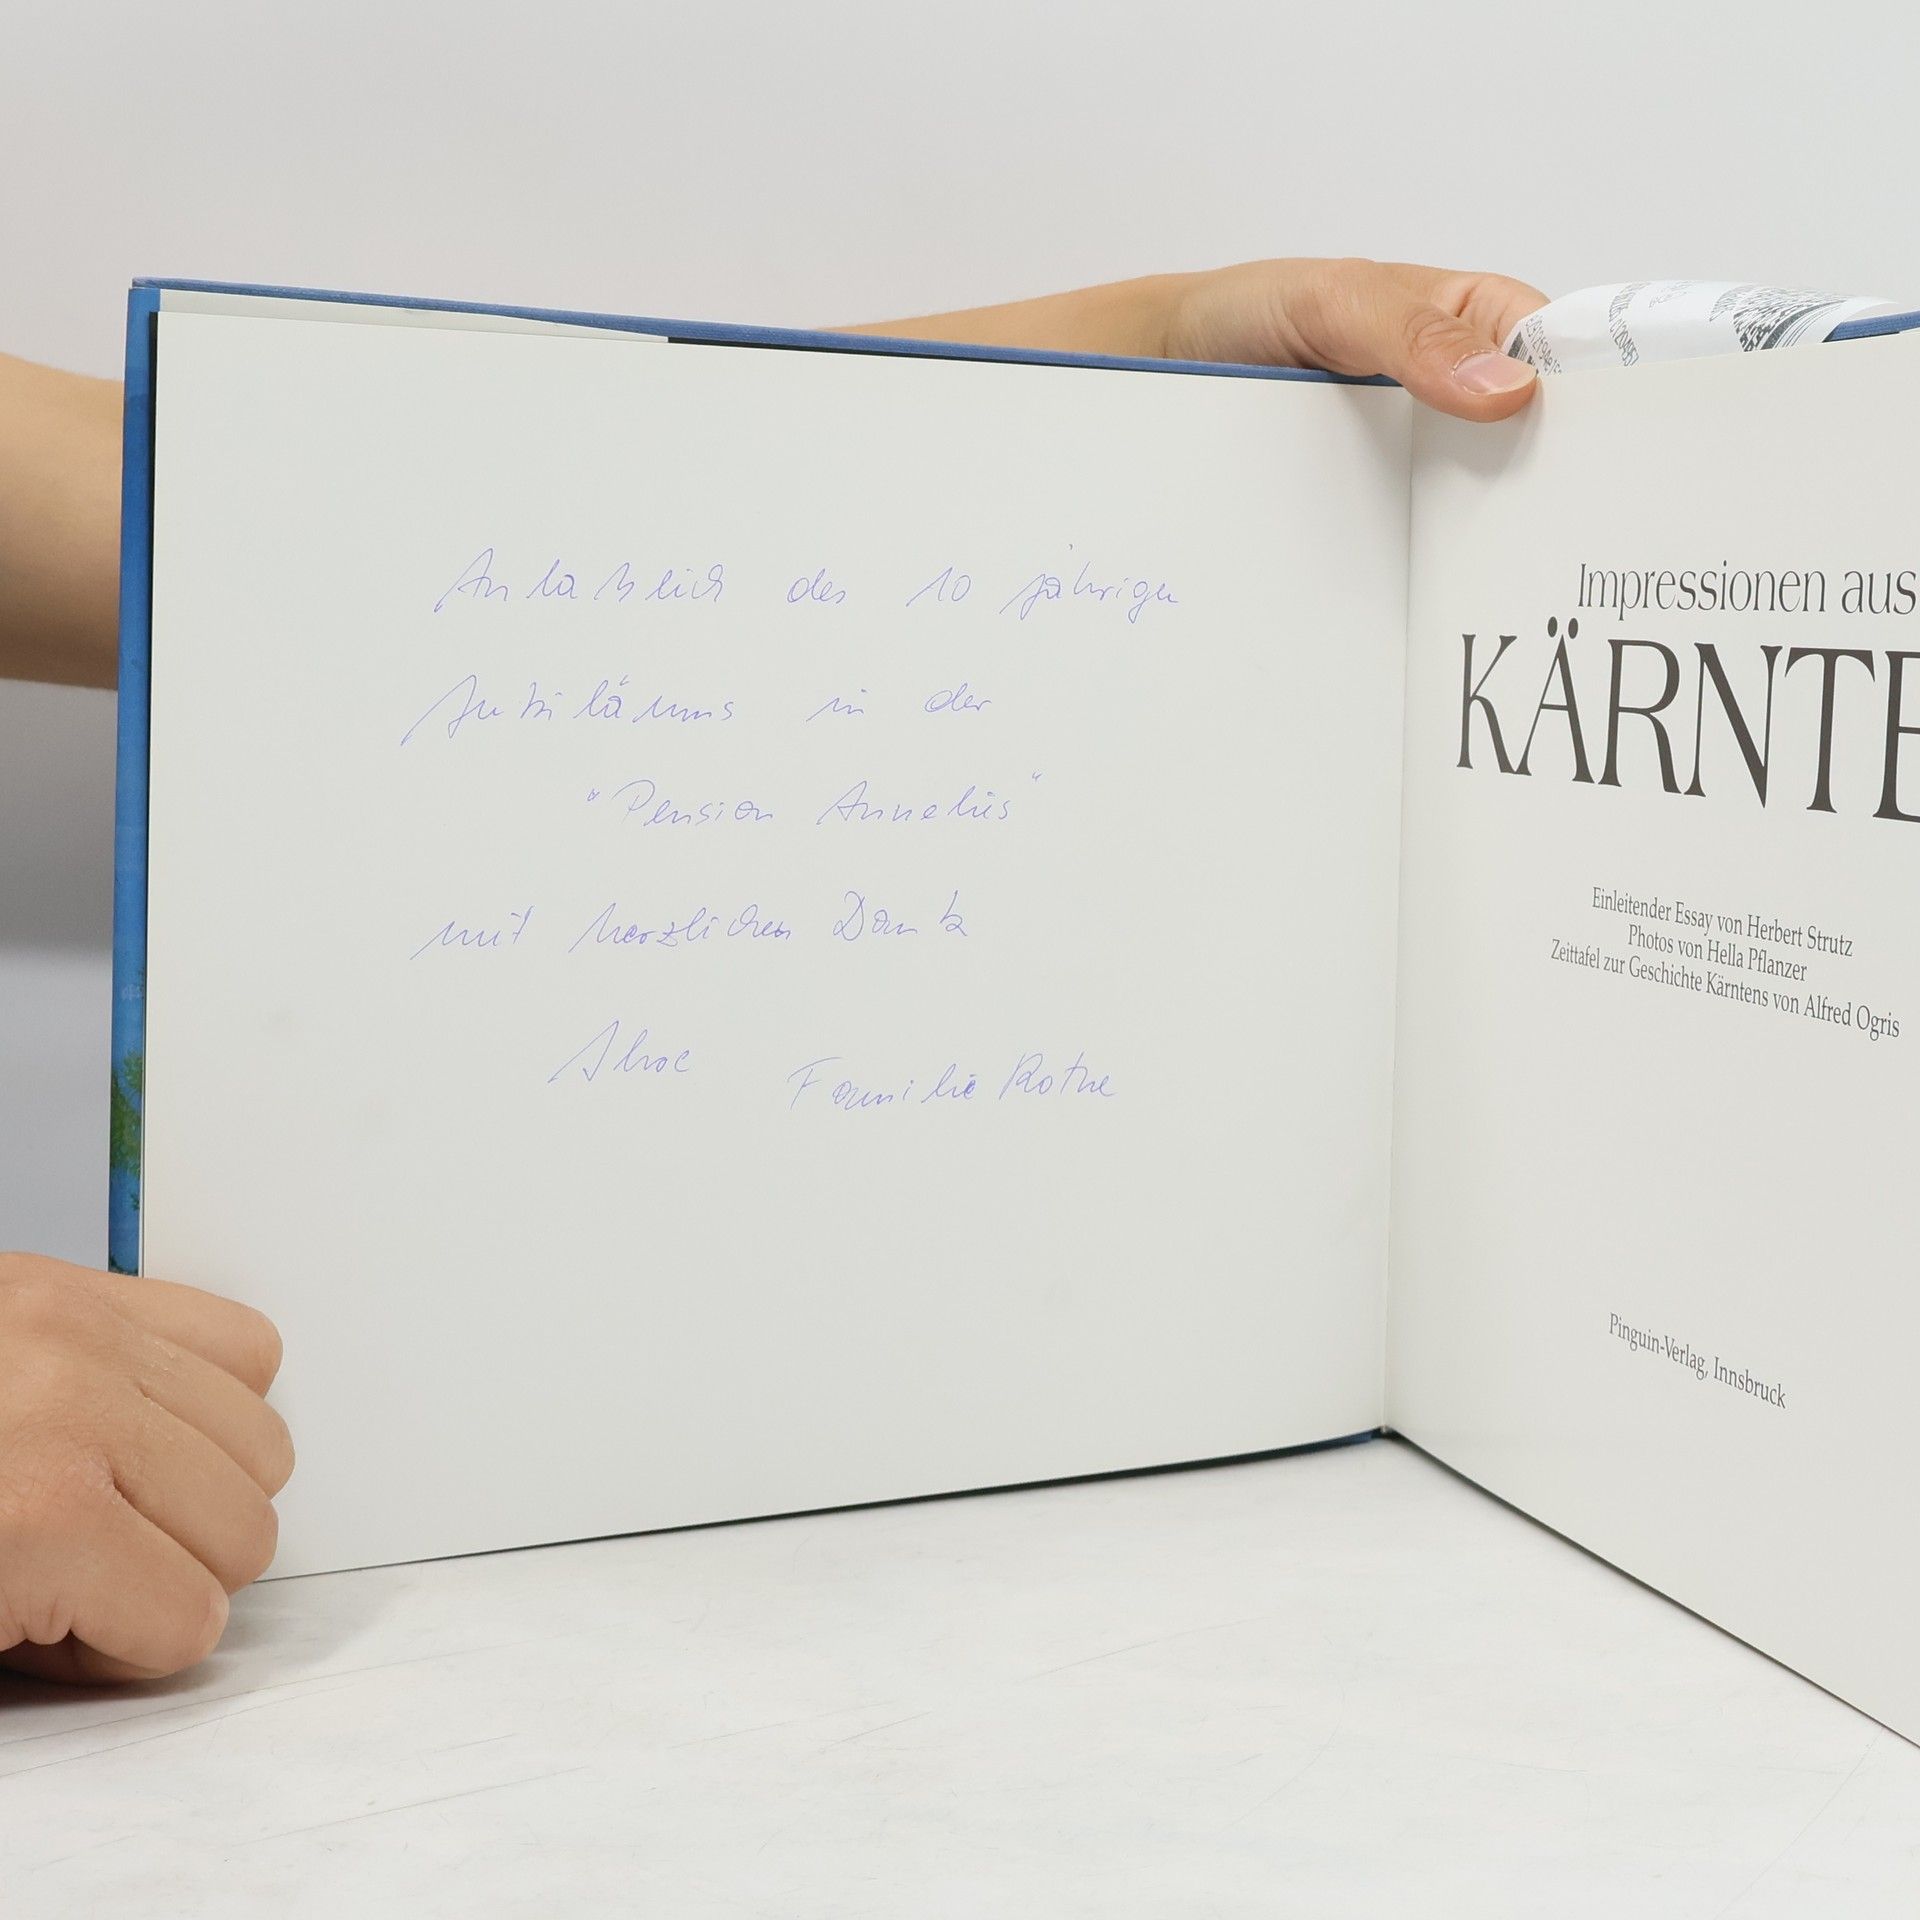 Anlaßlich des 10 jährigen
Jubiläums in der
"Pension Annelies"
mit herzlichen Dank
Ihre Familie Rothe
Impressionen aus
KÄRNTE
Einleitender Essay von Herbert Strutz
Photos von Hella Pflanzer
Zeittafel zur Geschichte Kärntens von Alfred Ogris
Pinguin-Verlag, Innsbruck